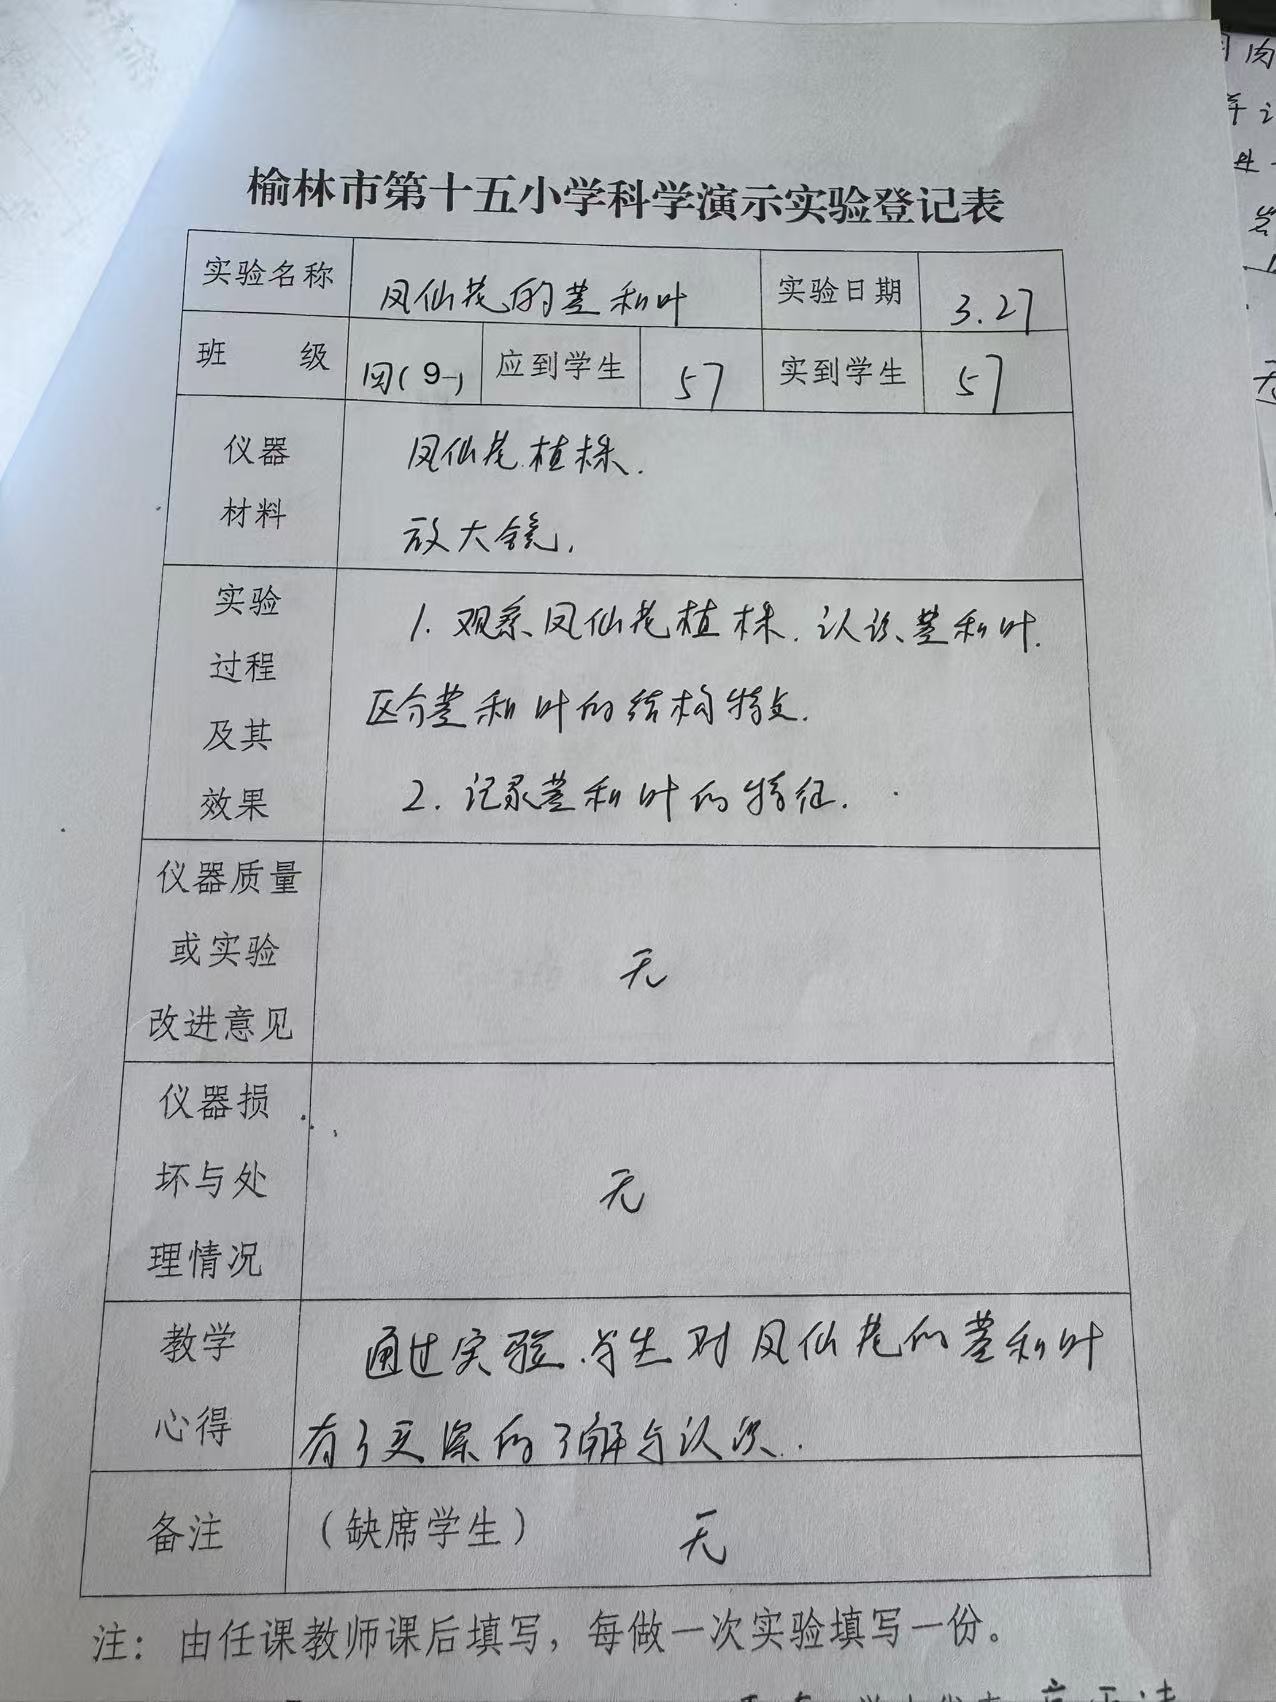 榆林市第十五小学科学演示实验登记表
实验名称 凤仙花的茎和叶 实验日期 3.27
班 级 四(9) 应到学生 57 实到学生 57
仪器 凤仙花植株.
材料 放大镜.
实验 1. 观察凤仙花植株. 认识茎和叶.
过程
及其 区分茎和叶的结构特点.
效果 2. 记录茎和叶的特征.
仪器质量
或实验 无
改进意见
仪器损
坏与处 无
理情况
教学 通过实验.学生对凤仙花的茎和叶
心得 有了更深的了解与认识.
备注 (缺席学生) 无
注：由任课教师课后填写，每做一次实验填写一份。